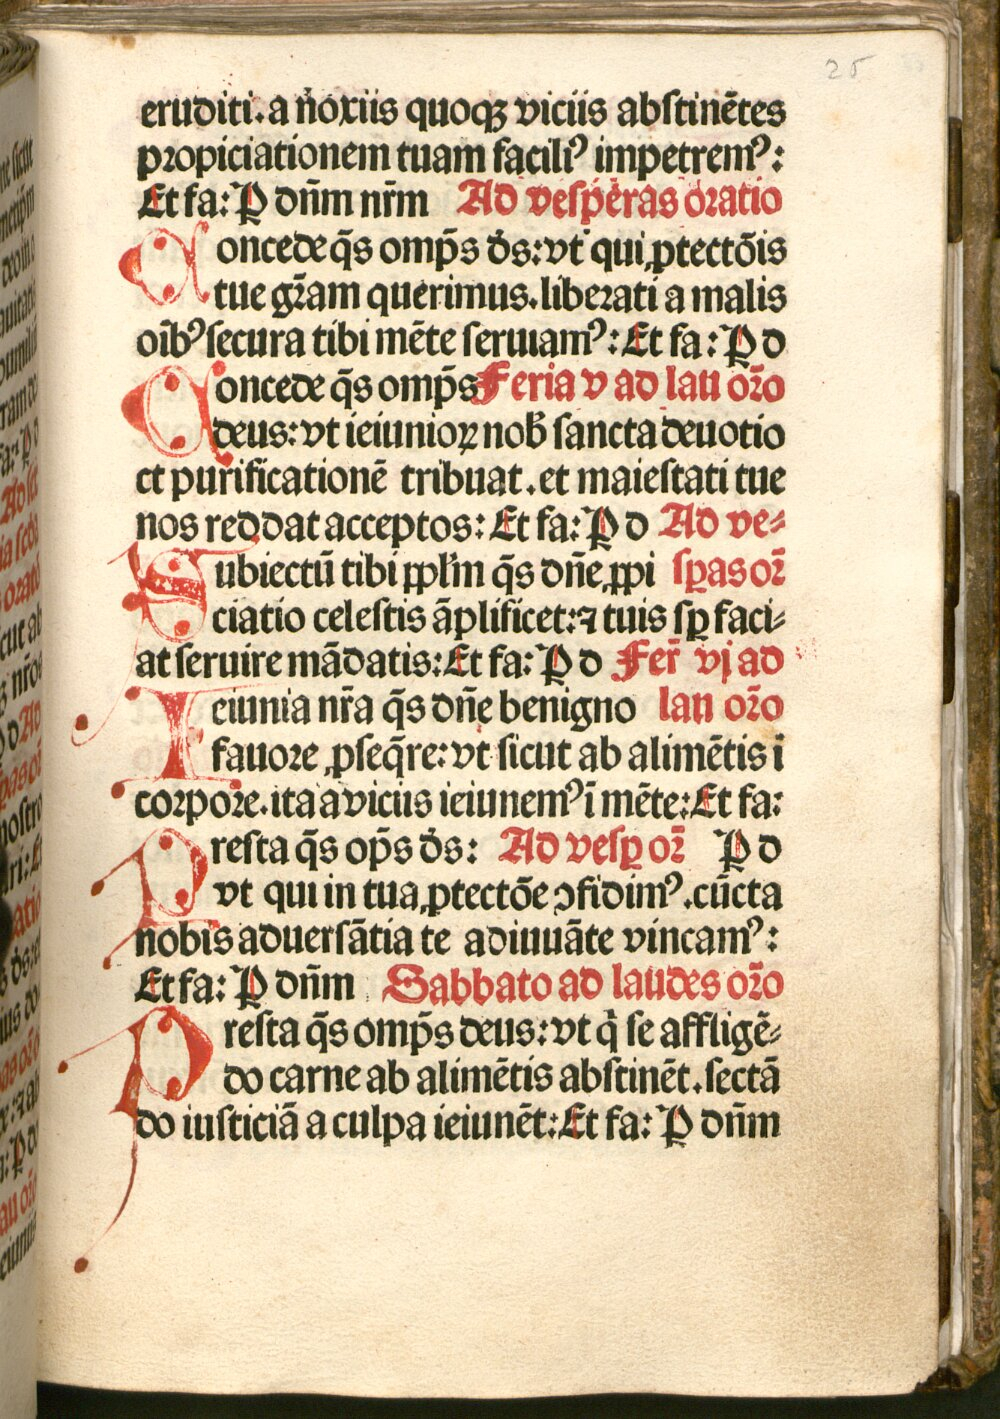 25
eruditi. a noxiis quoqꝫ viciis abſtinētes
propiciationem tuam faciliꝰ impetremꝰ:
Et fa: P dn̄m nr̄m Ad veſperas oratio
Concede q̄s omp̄s d̄s: vt qui ꝓtectōis
tue gr̄am querimus. liberati a malis
oībꝰ ſecura tibi mēte ſeruiamꝰ: Et fa: P d
Concede q̄s omp̄s Feria v ad lau or̄o
deus: vt ieiunioꝝ nob̄ ſancta deuotio
et purificationē tribuat. et maieſtati tue
nos reddat acceptos: Et fa: P d Ad ve⸗
Subiectū tibi ppl̄m q̄s dn̄e, ꝓpi ſꝑas or̄
ciatio celeſtis āplificet: ⁊ tuis ſꝑ faci⸗
at ſeruire mādatis: Et fa: P d Fer̄ vj ad
Ieiunia nr̄a q̄s dn̄e benigno lau or̄o
fauore ꝓſeq̄re: vt ſicut ab alimētis ī
corpore. ita a viciis ieiunemꝰ ī mēte: Et fa:
Preſta q̄s op̄s d̄s: Ad veſꝑ or̄ P d
vt qui in tua ꝓtectōe ↄfidimꝰ. cūcta
nobis aduerſātia te adiuuāte vincamꝰ:
Et fa: P dn̄m Sabbato ad laudes or̄o
Preſta q̄s omp̄s deus: vt q̄ ſe affligē⸗
do carne ab alimētis abſtinēt. ſectā
do iuſticiā a culpa ieiunēt: Et fa: P dn̄m